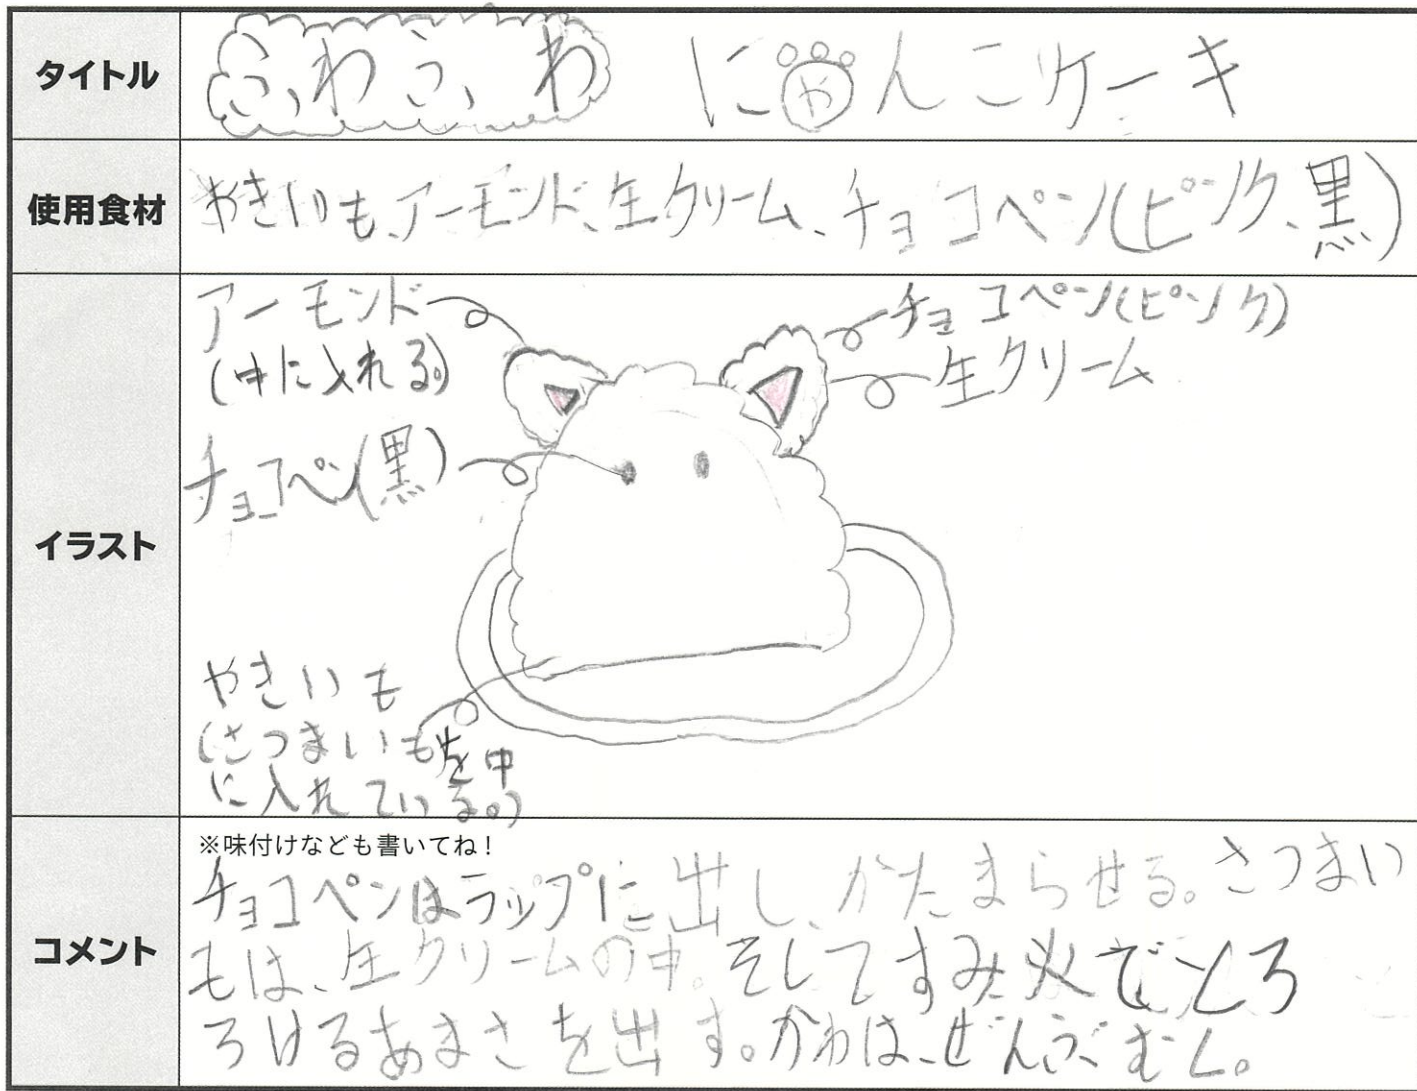 タイトル
ふわふわ にゃんこケーキ
使用食材
やきいも、アーモンド、生クリーム、チョコペン(ピンク、黒)
イラスト
アーモンド
(中に入れる。)
チョコペン(ピンク)
生クリーム
チョコペン(黒)
やきいも
(さつまいもを中
に入れている。)
コメント
※味付けなども書いてね!
チョコペンはラップに出し、かたまらせる。さつまい
もは、生クリームの中。そしてすみ火でとろ
ろけるあまさを出す。かわは、ぜんぶむく。